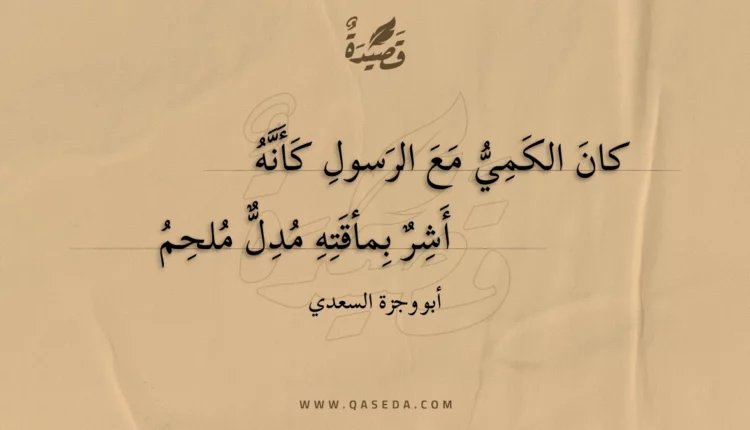 قَصِيْدَةٌ
كانَ الكَمِيُّ مَعَ الرَسولِ كَأَنَّهُ
أَشِرٌ بِمأقَتِهِ مُدِلٌّ مُلحِمُ
أبو وجزة السعدي
WWW.QASEDA.COM